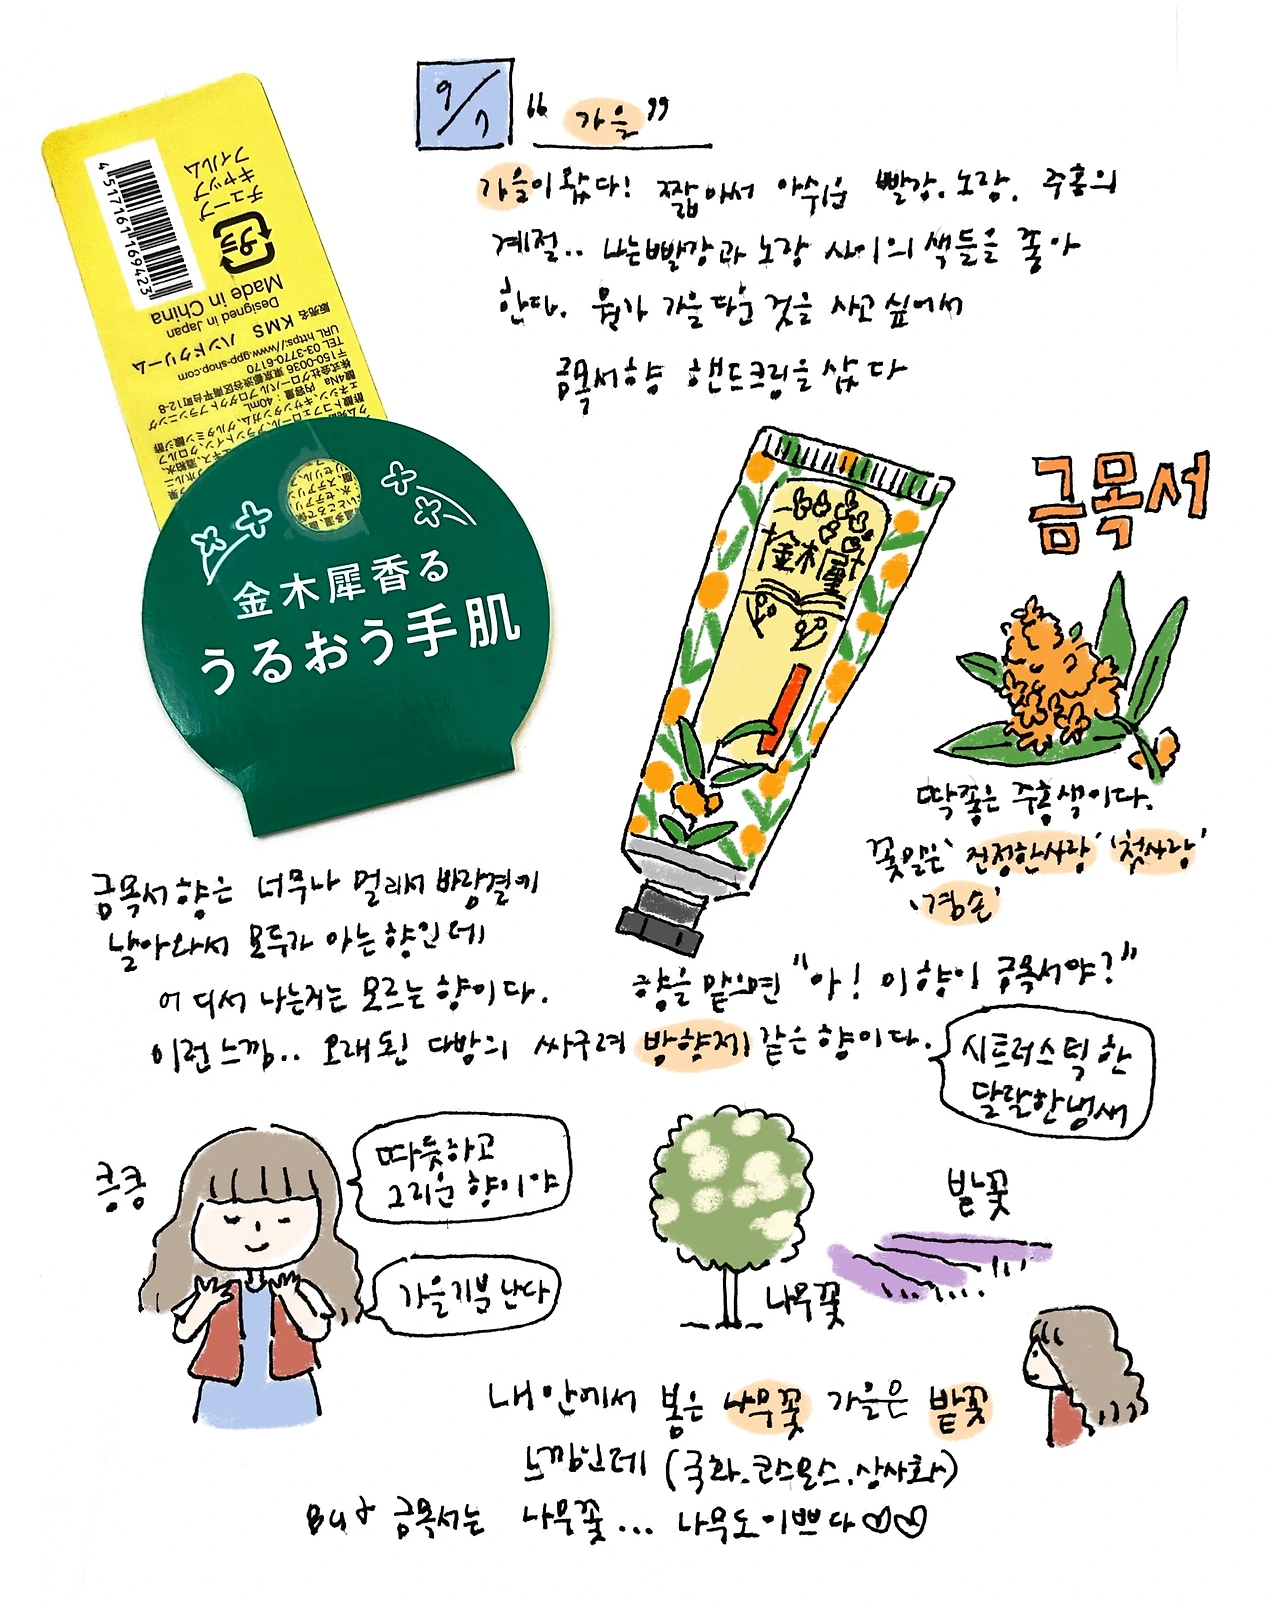 9/7 "가을"
가을이 왔다! 짧아서 아쉬운 빨강. 노랑. 주홍의
계절.. 나는 빨강과 노랑 사이의 색들을 좋아
한다. 뭔가 가을다운 것을 사고 싶어서
금목서향 핸드크림을 샀다
4517161169423
チューブ
キャップ
フィルム
プラ
Made in China
Designed in Japan
販売名 KMS ハンドクリーム
URL https://www.gpp-shop.com
TEL 03-3770-6170
〒150-0036 東京都渋谷区南平台町12-8
株式会社グローバルプロダクトプランニング
内容量：40mL
金木犀香る
うるおう手肌
金木犀
금목서
딱좋은 주홍색이다.
꽃말은 '진정한사랑' '첫사랑'
'겸손'
금목서 향은 너무나 멀리서 바람결에
날아와서 모두가 아는 향인데
어디서 나는지는 모르는 향이다.
향을 맡으면 "아! 이 향이 금목서야?"
이런느낌.. 오래된 다방의 싸구려 방향제 같은 향이다.
시트러스틱한
달달한냄새
킁킁
따뜻하고
그리운 향이야
가을기분 난다
나무꽃
밭꽃
내 안에서 봄은 나무꽃 가을은 밭꽃
느낌인데 (국화.코스모스.상사화)
But 금목서는 나무꽃... 나무도이쁘다♡♡